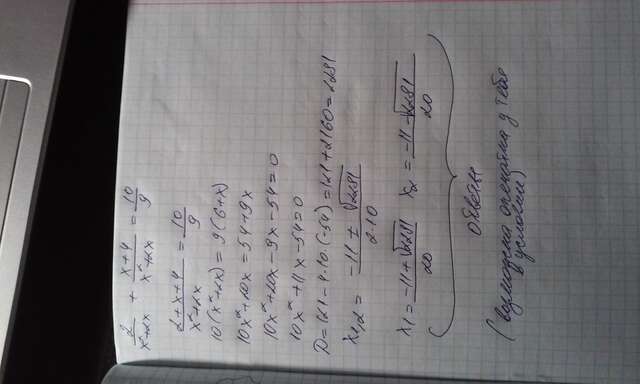 2/(x²+2x) + (x+4)/(x²+2x) = 10/9
(2+x+4)/(x²+2x) = 10/9
10(x²+2x) = 9(6+x)
10x²+20x = 54+9x
10x²+20x-9x-54=0
10x²+11x-54=0
D=121-4·10·(-54)=121+2160=2281
x₁,₂ = (-11 ± √2281)/(2·10)
x₁ = (-11+√2281)/20 x₂ = (-11-√2281)/20
ответы
(возможна опечатка у тебя
в условии)